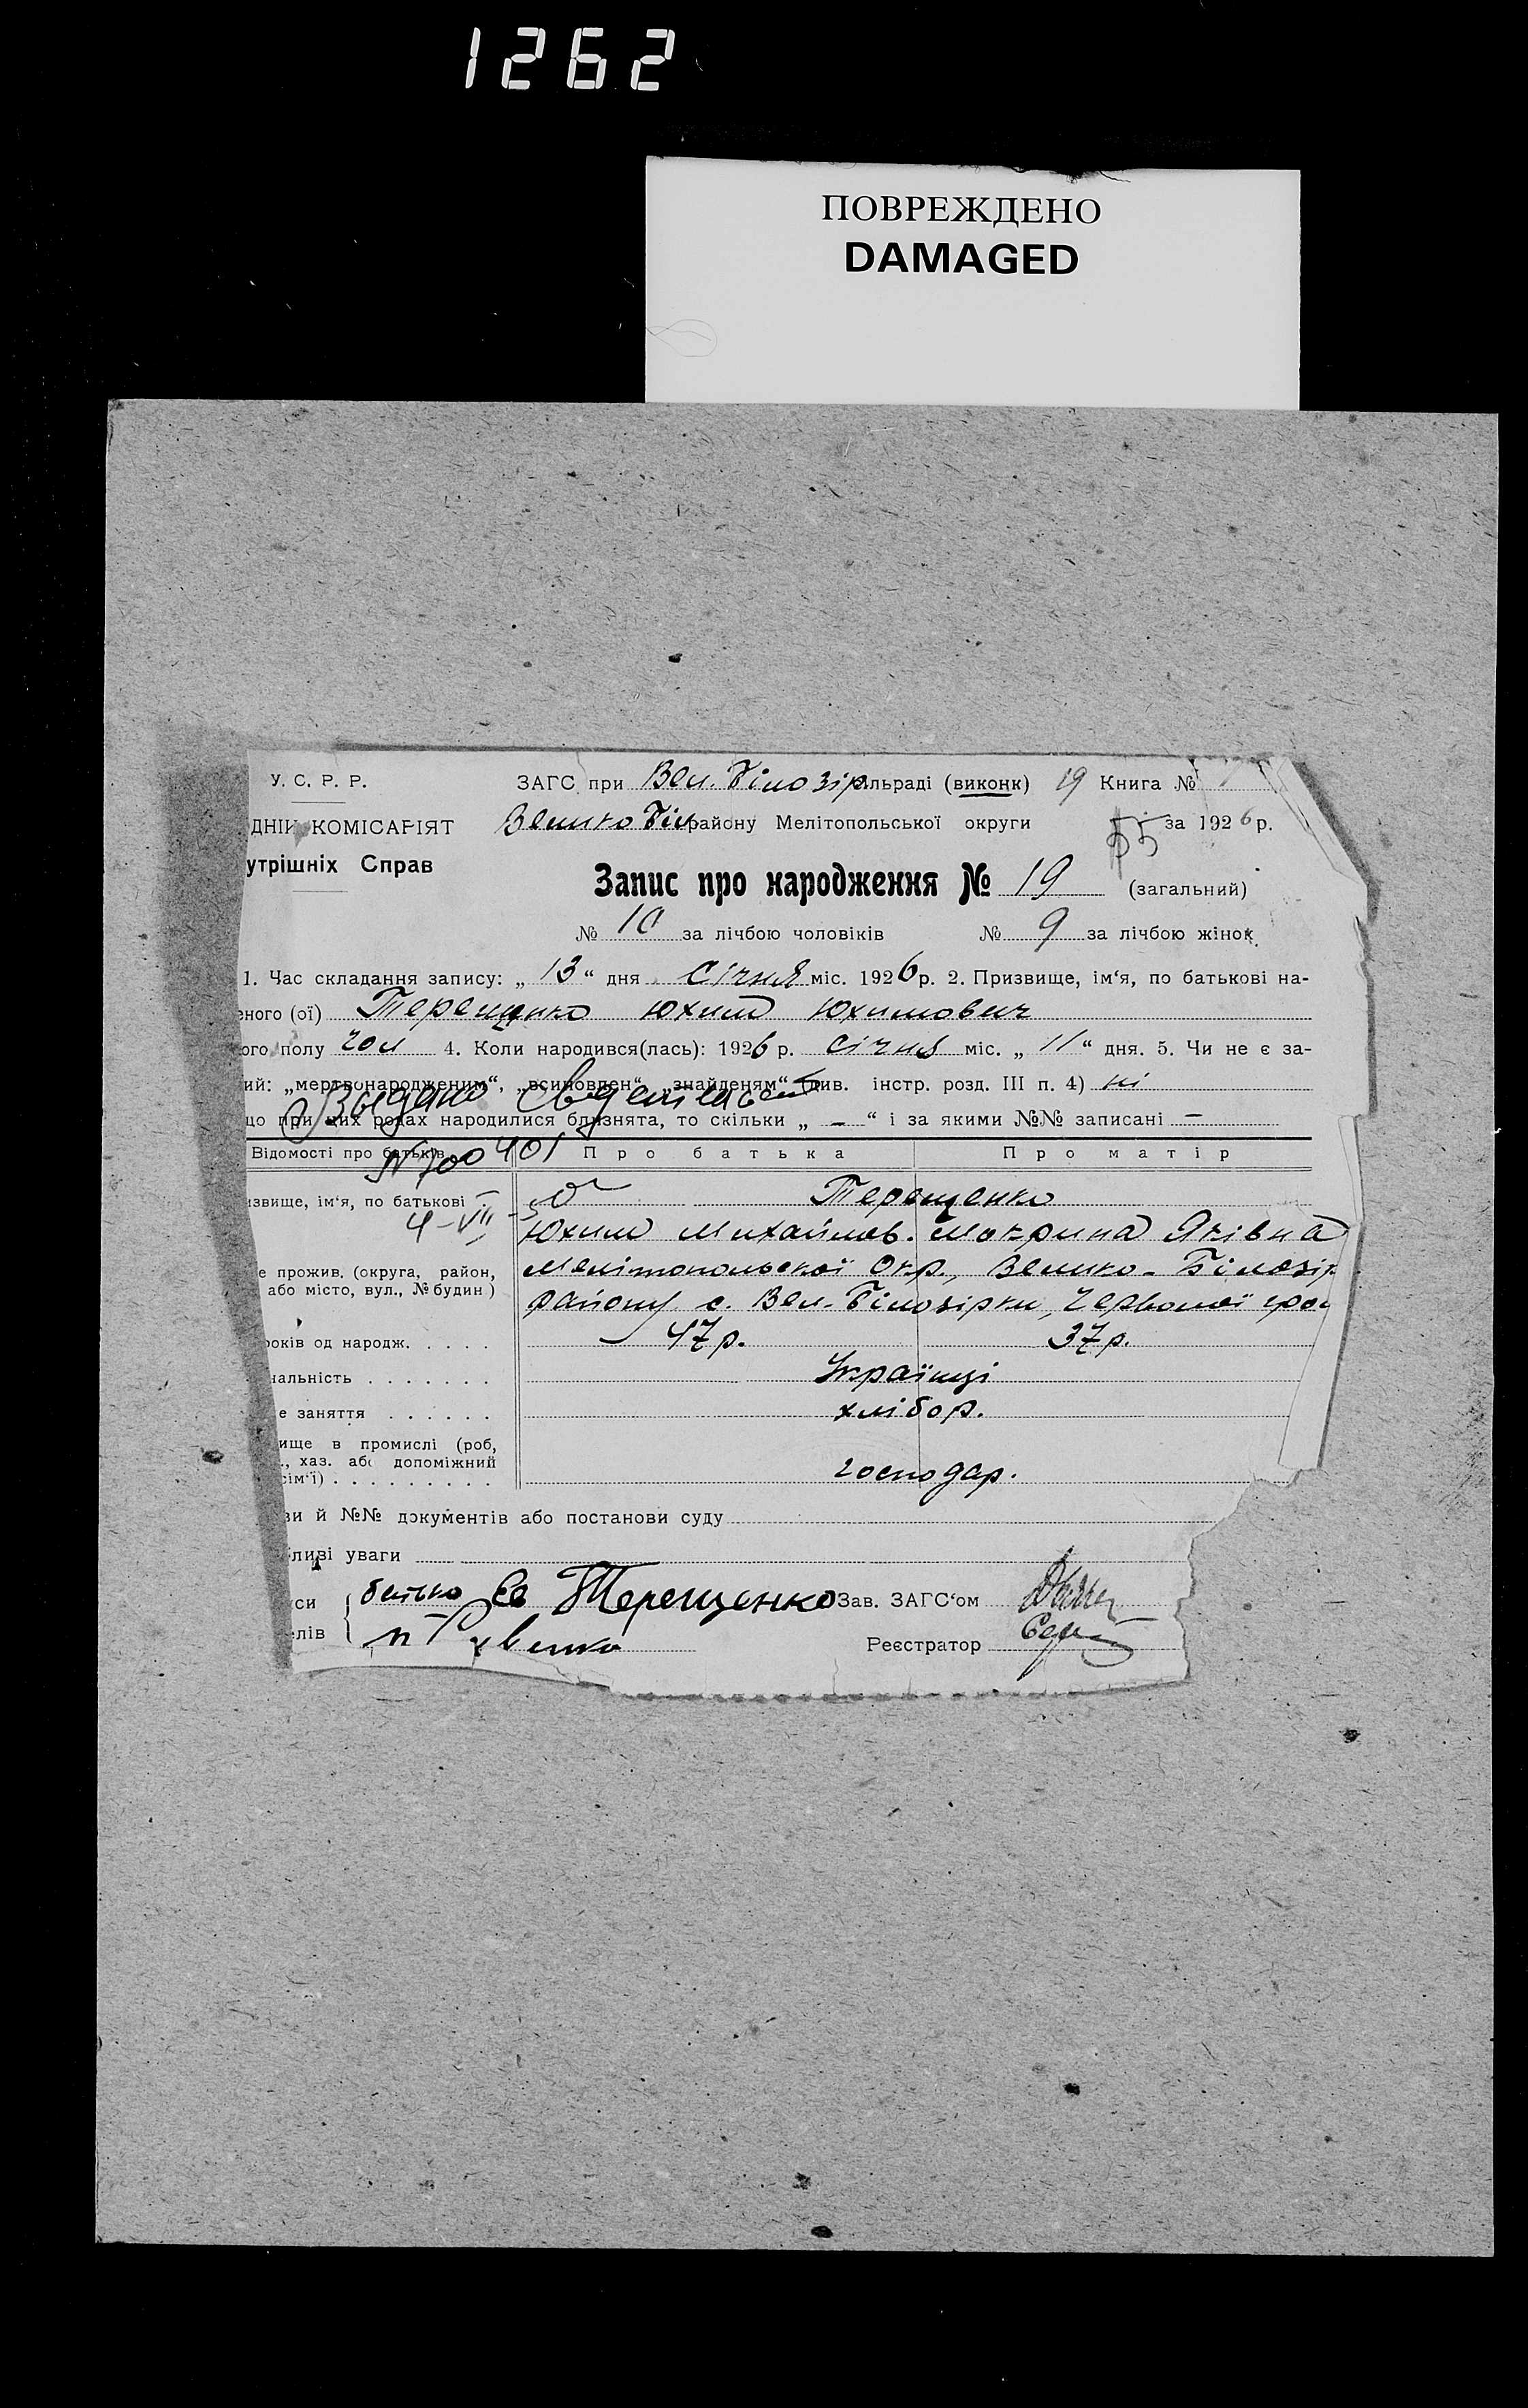 1262
ПОВРЕЖДЕНО
DAMAGED
У. С. Р. Р. ЗАГС при Вел. Білозір ільраді (виконк) 19 Книга №
ДНІЙ КОМІСАРІЯТ Велико Біл району Мелітопольської округи 55 за 1926 р.
утрішніх Справ
Запис про народження № 19 (загальний)
№ 10 за лічбою чоловіків № 9 за лічбою жінок.
1. Час складання запису: „ 13 “ дня січня міс. 1926 р. 2. Призвище, ім'я, по батькові на-
еного (ої) Терещенко Юхим Юхимович
ого полу чол 4. Коли народився(лась): 1926 р. січня міс. „ 11 “ дня. 5. Чи не є за-
ий: „мертвонародженим“, „всиновлен“, „знайденям“ (див. інстр. розд. III п. 4) ні
Выдано
що при цих родах народилися близнята, то скільки „ – “ і за якими №№ записані –
Відомості про батьків Про батька Про матір
№ 700401
извище, ім'я, по батькові Терещенко
4-VII
Юхим Михайлов. Мокрина Яківна
е прожив. (округа, район, Мелітопольської Окр., Велико-Білозір
або місто, вул., № будин.) району с. Вел-Білозірки, Червоної
років од народж. . . . . 47 р. 37 р.
нальність . . . . . . . Українці
е заняття . . . . . . хлібор.
ище в промислі (роб,
., хаз. або допоміжний
сім'ї) . . . . . . . . . господар.
ви й №№ документів або постанови суду
ливі уваги
си батько Терещенко Зав. ЗАГС'ом
елів Реєстратор